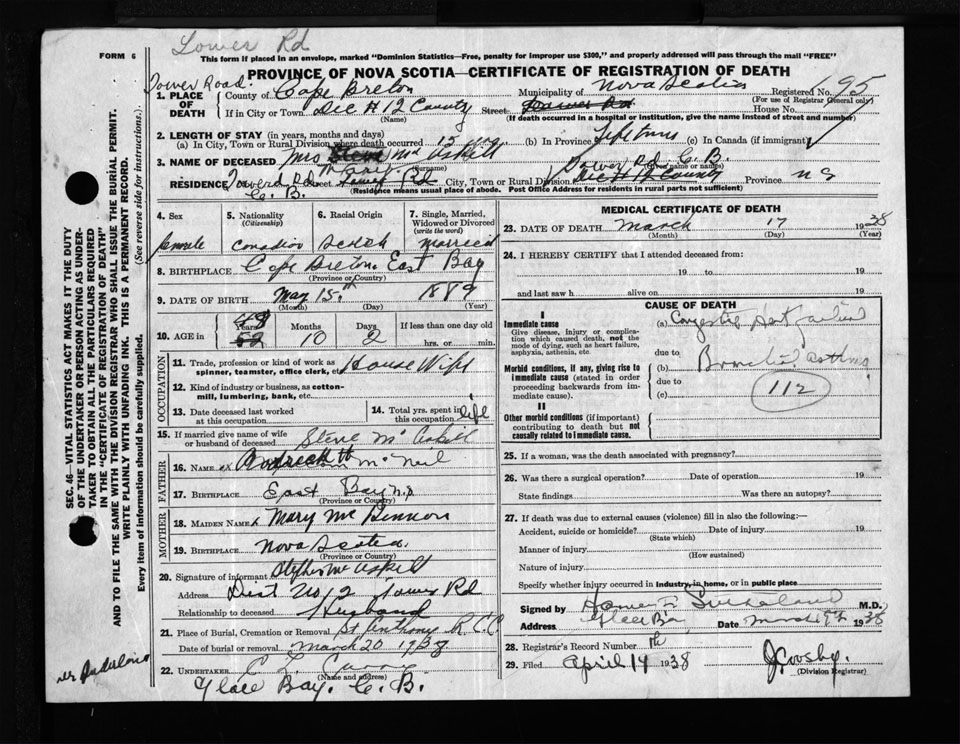 Tower Rd
FORM 6
This form if placed in an envelope, marked "Dominion Statistics—Free, penalty for improper use $300," and properly addressed will pass through the mail "FREE"
PROVINCE OF NOVA SCOTIA—CERTIFICATE OF REGISTRATION OF DEATH
Tower Road.
1. PLACE OF DEATH
County of Cape Breton
Municipality of Nova Scotia
Registered No. 195
(For use of Registrar General only)
If in City or Town Dec # 12 County Street Tower Rd House No.
(Name)
(If death occurred in a hospital or institution, give the name instead of street and number)
2. LENGTH OF STAY (in years, months and days)
(a) In City, Town or Rural Division where death occurred 15 (b) In Province Lifetime (c) In Canada (if immigrant)
3. NAME OF DECEASED Mrs Steve Mc Askill
Mary
(Surname) (Given name or names)
RESIDENCE Tower Rd Street Tower Rd City, Town or Rural Division Tower Rd C. B. Dec # 12 County Province N S
C. B.
(Residence means usual place of abode. Post Office Address for residents in rural parts not sufficient)
4. Sex
female
5. Nationality
(Citizenship)
Canadian
6. Racial Origin
Scotch
7. Single, Married, Widowed or Divorced
(write the word)
married
8. BIRTHPLACE Cape Breton East Bay
(Province or Country)
9. DATE OF BIRTH May 15th 1889
(Month) (Day) (Year)
10. AGE in
48
Years
52
Months
10
Days
2
If less than one day old
hrs. or min.
OCCUPATION
11. Trade, profession or kind of work as spinner, teamster, office clerk, etc. House Wife
12. Kind of industry or business, as cotton-mill, lumbering, bank, etc.
13. Date deceased last worked at this occupation
14. Total yrs. spent in this occupation life
15. If married give name of wife or husband of deceased Steve Mc Askill
FATHER
16. Name Mc Neil
17. Birthplace East Bay N.S
(Province or Country)
MOTHER
18. Maiden Name Mary Mc Kinnon
19. Birthplace Nova Scotia.
(Province or Country)
20. Signature of informant Stephen Mc Askill
Address Dist No 12 Tower Rd
Relationship to deceased Husband
21. Place of Burial, Cremation or Removal St Anthony R.C.C
Date of burial or removal March 20 1938
22. UNDERTAKER C. Curry
(Name and address)
Glace Bay. C. B.
MEDICAL CERTIFICATE OF DEATH
23. DATE OF DEATH March 17 1938
(Month) (Day) (Year)
24. I HEREBY CERTIFY that I attended deceased from:
19 to 19
and last saw h alive on 19
CAUSE OF DEATH
I
Immediate cause
Give disease, injury or complication which caused death, not the mode of dying, such as heart failure, asphyxia, asthenia, etc
(a) Congestive Heart failure
due to
Morbid conditions, if any, giving rise to immediate cause (stated in order proceeding backwards from immediate cause).
(b) Bronchial asthma
due to
(c) 112
II
Other morbid conditions (if important) contributing to death but not causally related to immediate cause.
25. If a woman, was the death associated with pregnancy?
26. Was there a surgical operation? Date of operation 19
State findings Was there an autopsy?
27. If death was due to external causes (violence) fill in also the following:—
Accident, suicide or homicide? Date of injury 19
(State which)
Manner of injury
(How sustained)
Nature of injury
Specify whether injury occurred in industry, in home, or in public place
Signed by Sutherland M.D.
Address Glace Bay Date March 1938
28. Registrar's Record Number
29. Filed April 14th 1938 J Crosby.
(Division Registrar)
SEC. 46—VITAL STATISTICS ACT MAKES IT THE DUTY
OF THE UNDERTAKER OR PERSON ACTING AS UNDER-
TAKER TO OBTAIN ALL THE PARTICULARS REQUIRED
IN THE "CERTIFICATE OF REGISTRATION OF DEATH"
AND TO FILE THE SAME WITH THE DIVISION REGISTRAR WHO SHALL ISSUE THE BURIAL PERMIT.
WRITE PLAINLY WITH UNFADING INK. THIS IS A PERMANENT RECORD.
Every item of information should be carefully supplied. (See reverse side for instructions.)